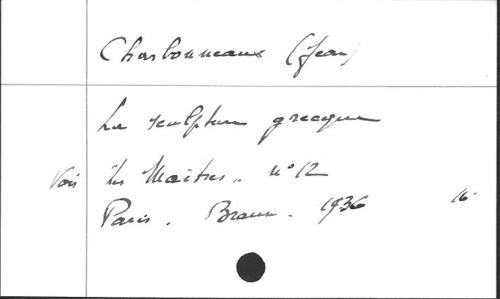 Charbonneaux (Jean)
La sculpture grecque
Voir "les Maîtres" n° 12
Paris. Braun. 1936 16.